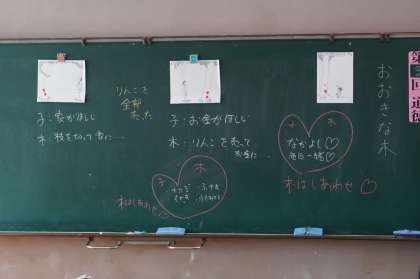 おおきな木
第
回
道徳
子 木
なかよし♡
毎日一緒♡
木はしあわせ♡
子：お金がほしい
木：りんごを売って
お金に…
りんごを
全部
売った
子：家がほしい
木：枝を切って家に…
子 木
木はしあわせ♡